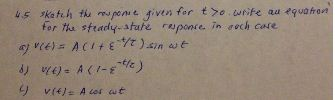 4.5 sketch the response given for t>0. write an equation
for the steady-state response in each case
a) v(t) = A (1 + ε^-t/τ) sin ωt
b) v(t) = A (1 - ε^-t/τ)
c) v(t) = A cos ωt